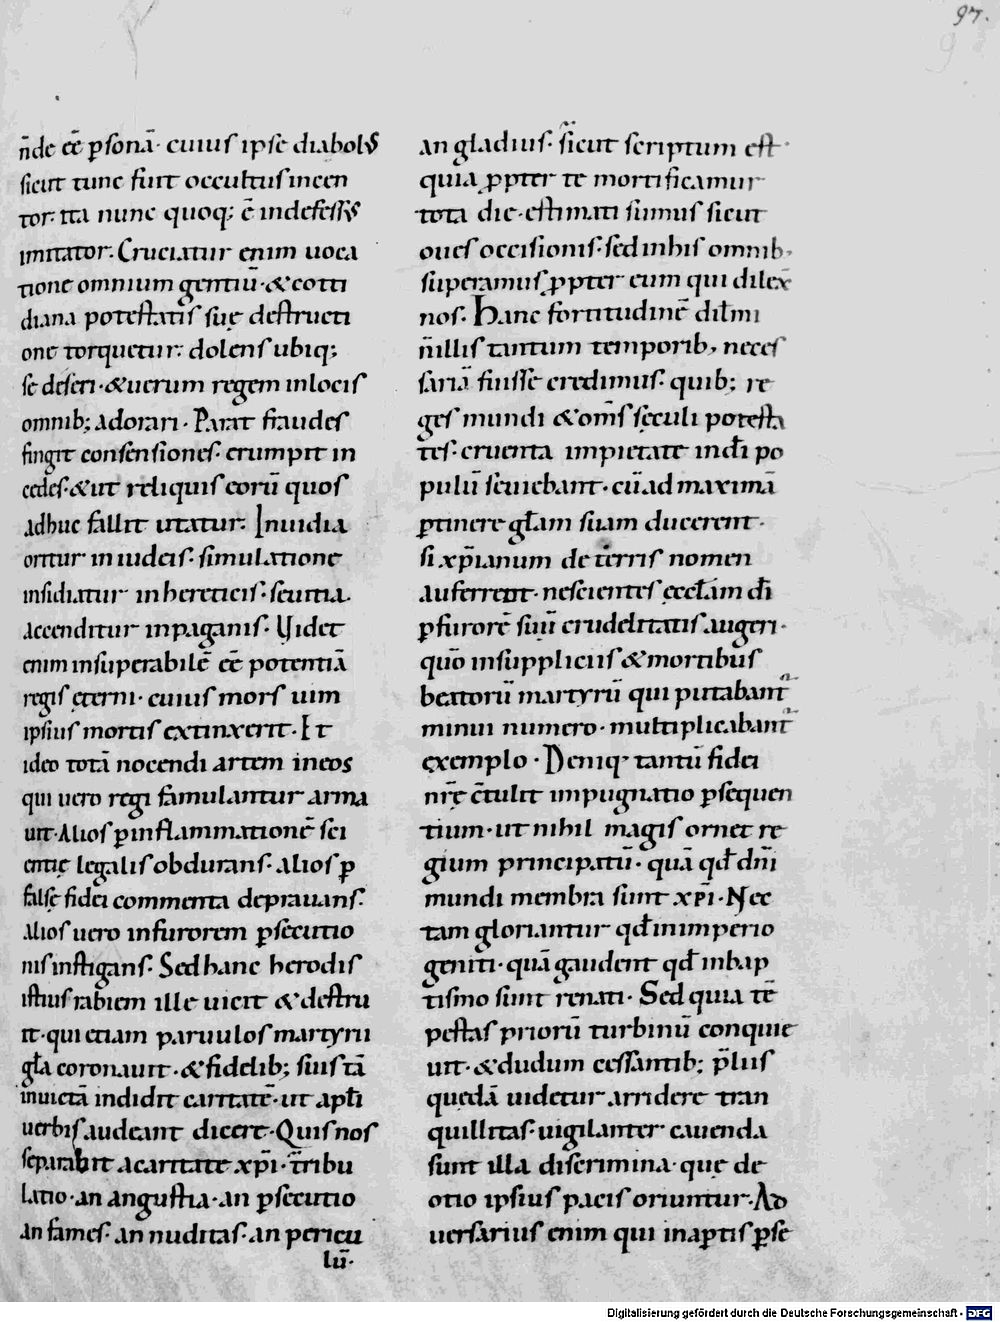 97.
n̄de eē ꝑsonā· cuius ipse diabolus
sicut tunc fuit occultus incen
tor· ita nunc quoq; ē indefessus
imitator. Cruciatur enim uoca
tione omnium gentiū· & cotti
diana potestatis suę destructi
one torquetur· dolens ubiq;
se deseri· & uerum regem in locis
omnib; adorari· Parat fraudes
fingit consensiones· erumpit in
cedes· & ut reliquis eorū quos
adhuc fallit utatur· Inuidia
oritur in iudeis· simulatione
insidiatur in hereticis· seuitia
accenditur in paganis· Videt
enim insuperabilē eē potentiā
regis ęterni· cuius mors uim
ipsius mortis extinxerit· Et
ideo totā nocendi artem in eos
qui uero regi famulantur arma
uit· Alios ꝑ inflammationē sci
entię legalis obdurans· alios ꝑ
falsę fidei commenta deprauans·
Alios uero in furorem ꝑsecutio
nis instigans· Sed hanc herodis
istius rabiem ille uicit & destru
it· qui etiam paruulos martyrii
gła coronauit· & fidelib; suis tā
inuictā indidit caritatē· ut apłi
uerbis audeant dicere· Quis nos
separabit a caritate xp̄i· tribu
latio· an angustia· an ꝑsecutio
an fames· an nuditas· an pericu
lū·
an gladius· sicut scriptum est·
quia ꝓpter te mortificamur
tota die· estimati sumus sicut
oues occisionis· sed in his omnib;
superamus ꝓpter eum qui dilex̄
nos· Hanc fortitudinē dił̄mi
n̄ illis tantum temporib; neces
sariā fuisse credimus· quib; re
ges mundi & om̄s sęculi potesta
tes· cruenta impietate in dī po
pulū seuiebant· cū ad maximā
ꝑtinere głam suam ducerent·
si xp̄ianum de terris nomen
auferrent· nescientes ęccłam dī
ꝑ furorē suū crudelitatis augeri·
quō in suppliciis & mortibus
beatorū martyrū qui putabant᷑
minui numero· multiplicabant᷑
exemplo· Deniq· tantū fidei
nr̄ę c̄tulit impugnatio ꝑsequen
tium· ut nihil magis ornet re
gium principatū· quā qđ dn̄i
mundi membra sunt xp̄i· Nec
tam gloriantur qđ in imperio
geniti· quā gaudent qđ in bap
tismo sunt renati· Sed quia tē
pestas priorū turbinū conquie
uit· & dudum cessantib; p̄liis
quędā uidetur arridere tran
quillitas· uigilanter cauenda
sunt illa discrimina· quę de
otio ipsius pacis oriuntur· Ad
uersarius enim qui in aꝑtis ꝑse
Digitalisierung gefördert durch die Deutsche Forschungsgemeinschaft - DFG